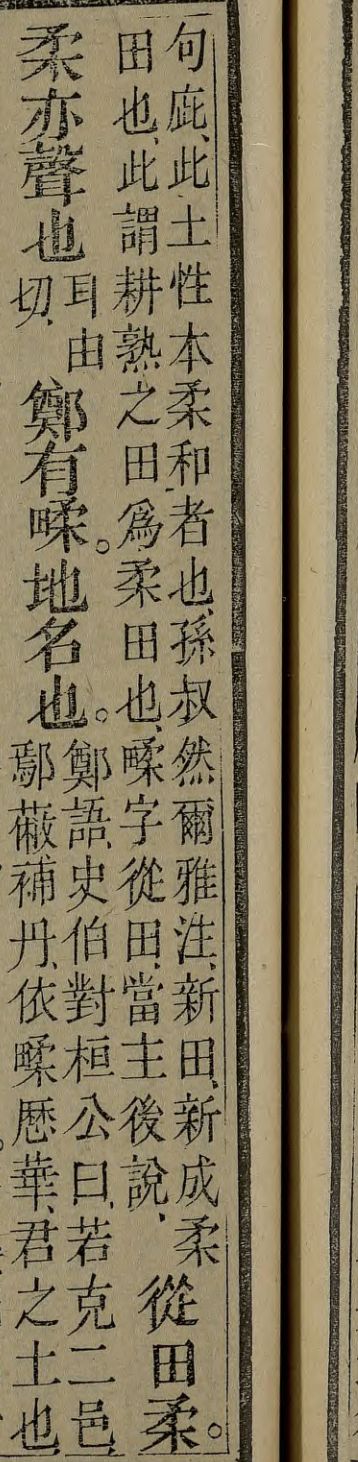 句庛、此土性本柔和者也、孫叔然爾雅注、新田、新成柔
田也、此謂耕熟之田爲柔田也、㽥字從田、當主後說、
從田柔。
柔亦聲也
耳由
切、
鄭有㽥。地名也。
鄭語、史伯對桓公曰、若克二邑
鄢蔽補丹、依㽥歷華、君之土也